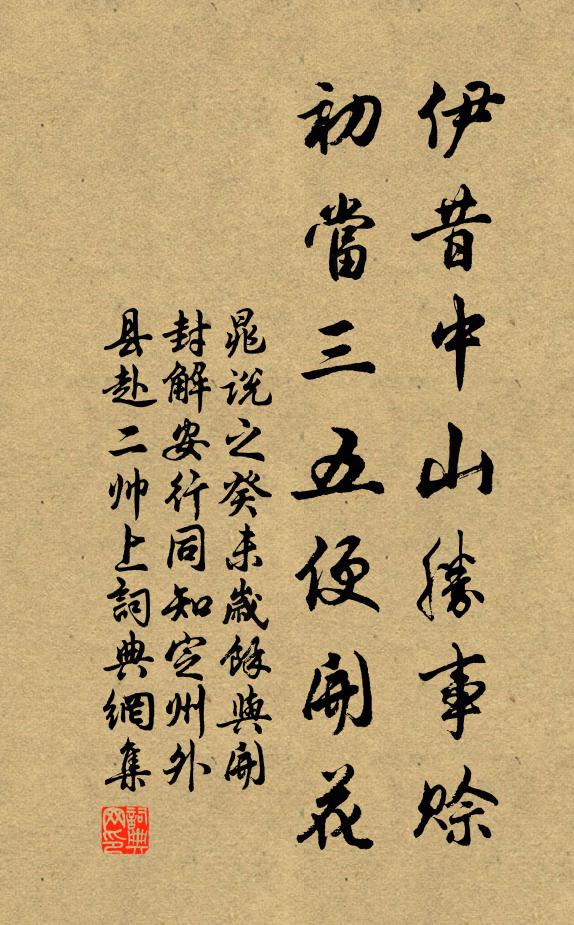 伊昔中山勝事賒
初當三五便開花
晁說之癸未歲餘與開
封解安行同知定州外
县赴二帅上詞典網集
詞典网印